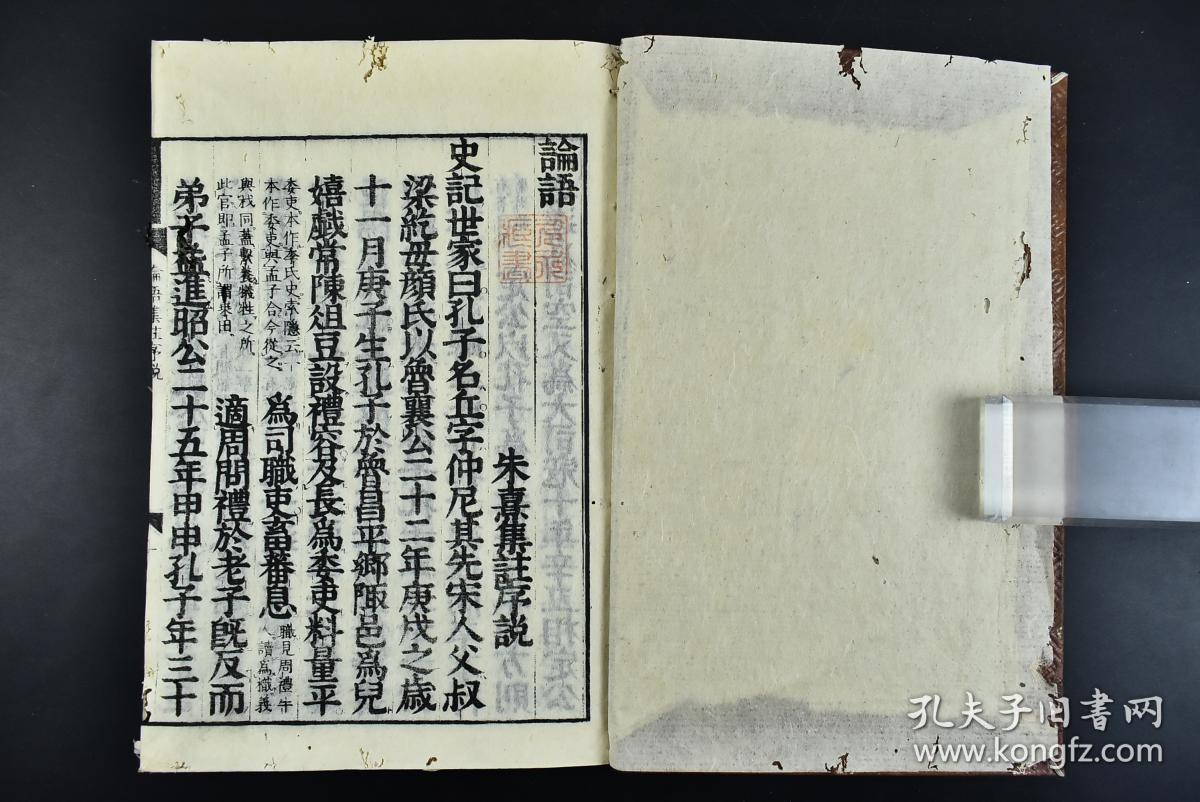 論語
朱熹集註序説
史記世家曰孔子名丘字仲尼其先宋人父叔
梁紇母顔氏以魯襄公二十二年庚戌之歳
十一月庚子生孔子於魯昌平鄉陬邑爲兒
嬉戲常陳俎豆設禮容及長爲委吏料量平
委吏本作季氏史索隱云一
本作委吏與孟子合今從之
爲司職吏畜蕃息
職見周禮牛
人讀爲樴義
與杙同蓋繫養犧牲之所
此官即孟子所謂乘田
適周問禮於老子既反而
弟子益進昭公二十五年甲申孔子年三十
論語集註序説
孔夫子旧書网
www.kongfz.com